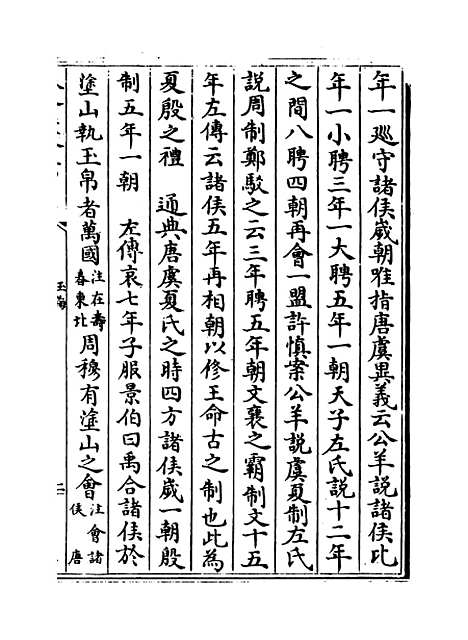 年一廵守諸侯歲朝唯指唐虞異義云公羊説諸侯比
年一小聘三年一大聘五年一朝天子左氏説十二年
之間八聘四朝再會一盟許慎案公羊説虞夏制左氏
説周制鄭駮之云三年聘五年朝文襄之霸制文十五
年左傳云諸侯五年再相朝以修王命古之制也此為
夏殷之禮　通典唐虞夏氏之時四方諸侯歲一朝殷
制五年一朝　左傳哀七年子服景伯曰禹合諸侯於
塗山執玉帛者萬國注在壽春東北周穆有塗山之會注會諸侯唐
玉海